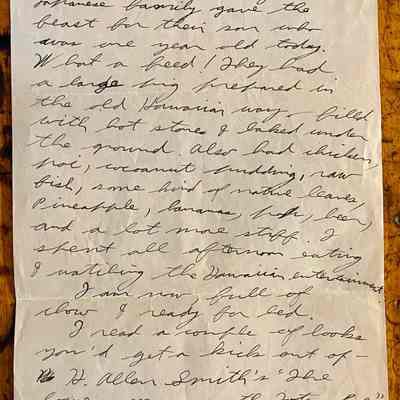 Japanese family gave the
beast for their son who
was one year old today.
What a feed! They had
a large pig prepared in
the old Hawaiian way - filled
with hot stones & baked under
the ground. Also had chicken,
poi, cocoanut pudding, raw
fish, some kind of native leaves,
Pineapple, bananas, pop, beer,
and a lot more stuff. I
spent all afternoon eating
& watching the Hawaiian entertainment.
I am now full of
chow & ready for bed.
I read a couple of books
you'd get a kick out of -
H. Allen Smith's "The